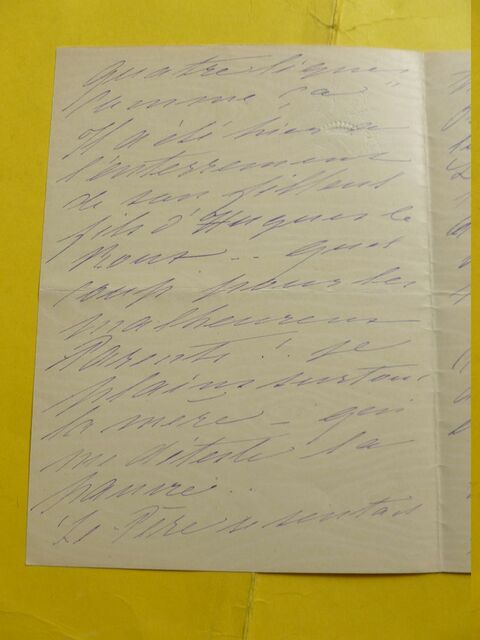 quatre lignes
comme "ça"
Il a été hier à
l'enterrement
de son filleul
fils d'Hugues le
Roux... quel
coup pour les
malheureux
Parents! je
plains surtout
la mère - qui
me déteste la
pauvre..
Le Père se sentait